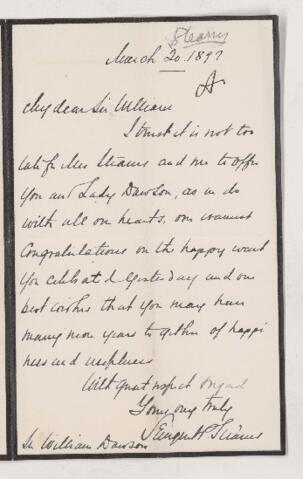 Stearns
March 20. 1897
A
My dear Sir William
I trust it is not too
late for Mrs Stearns and me to offer
You and Lady Dawson, as we do
with all our hearts, our warmest
Congratulations on the happy event
You celebrated Yesterday and our
best wishes that you may have
many more years together of happi
ness and usefulness
With great respect & regard
Yours very truly
Sergent P. Stearns
Sir William Dawson